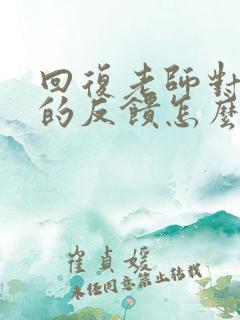 回復老師對
的反饋怎麼
崔貞媛
未经同意禁止转载